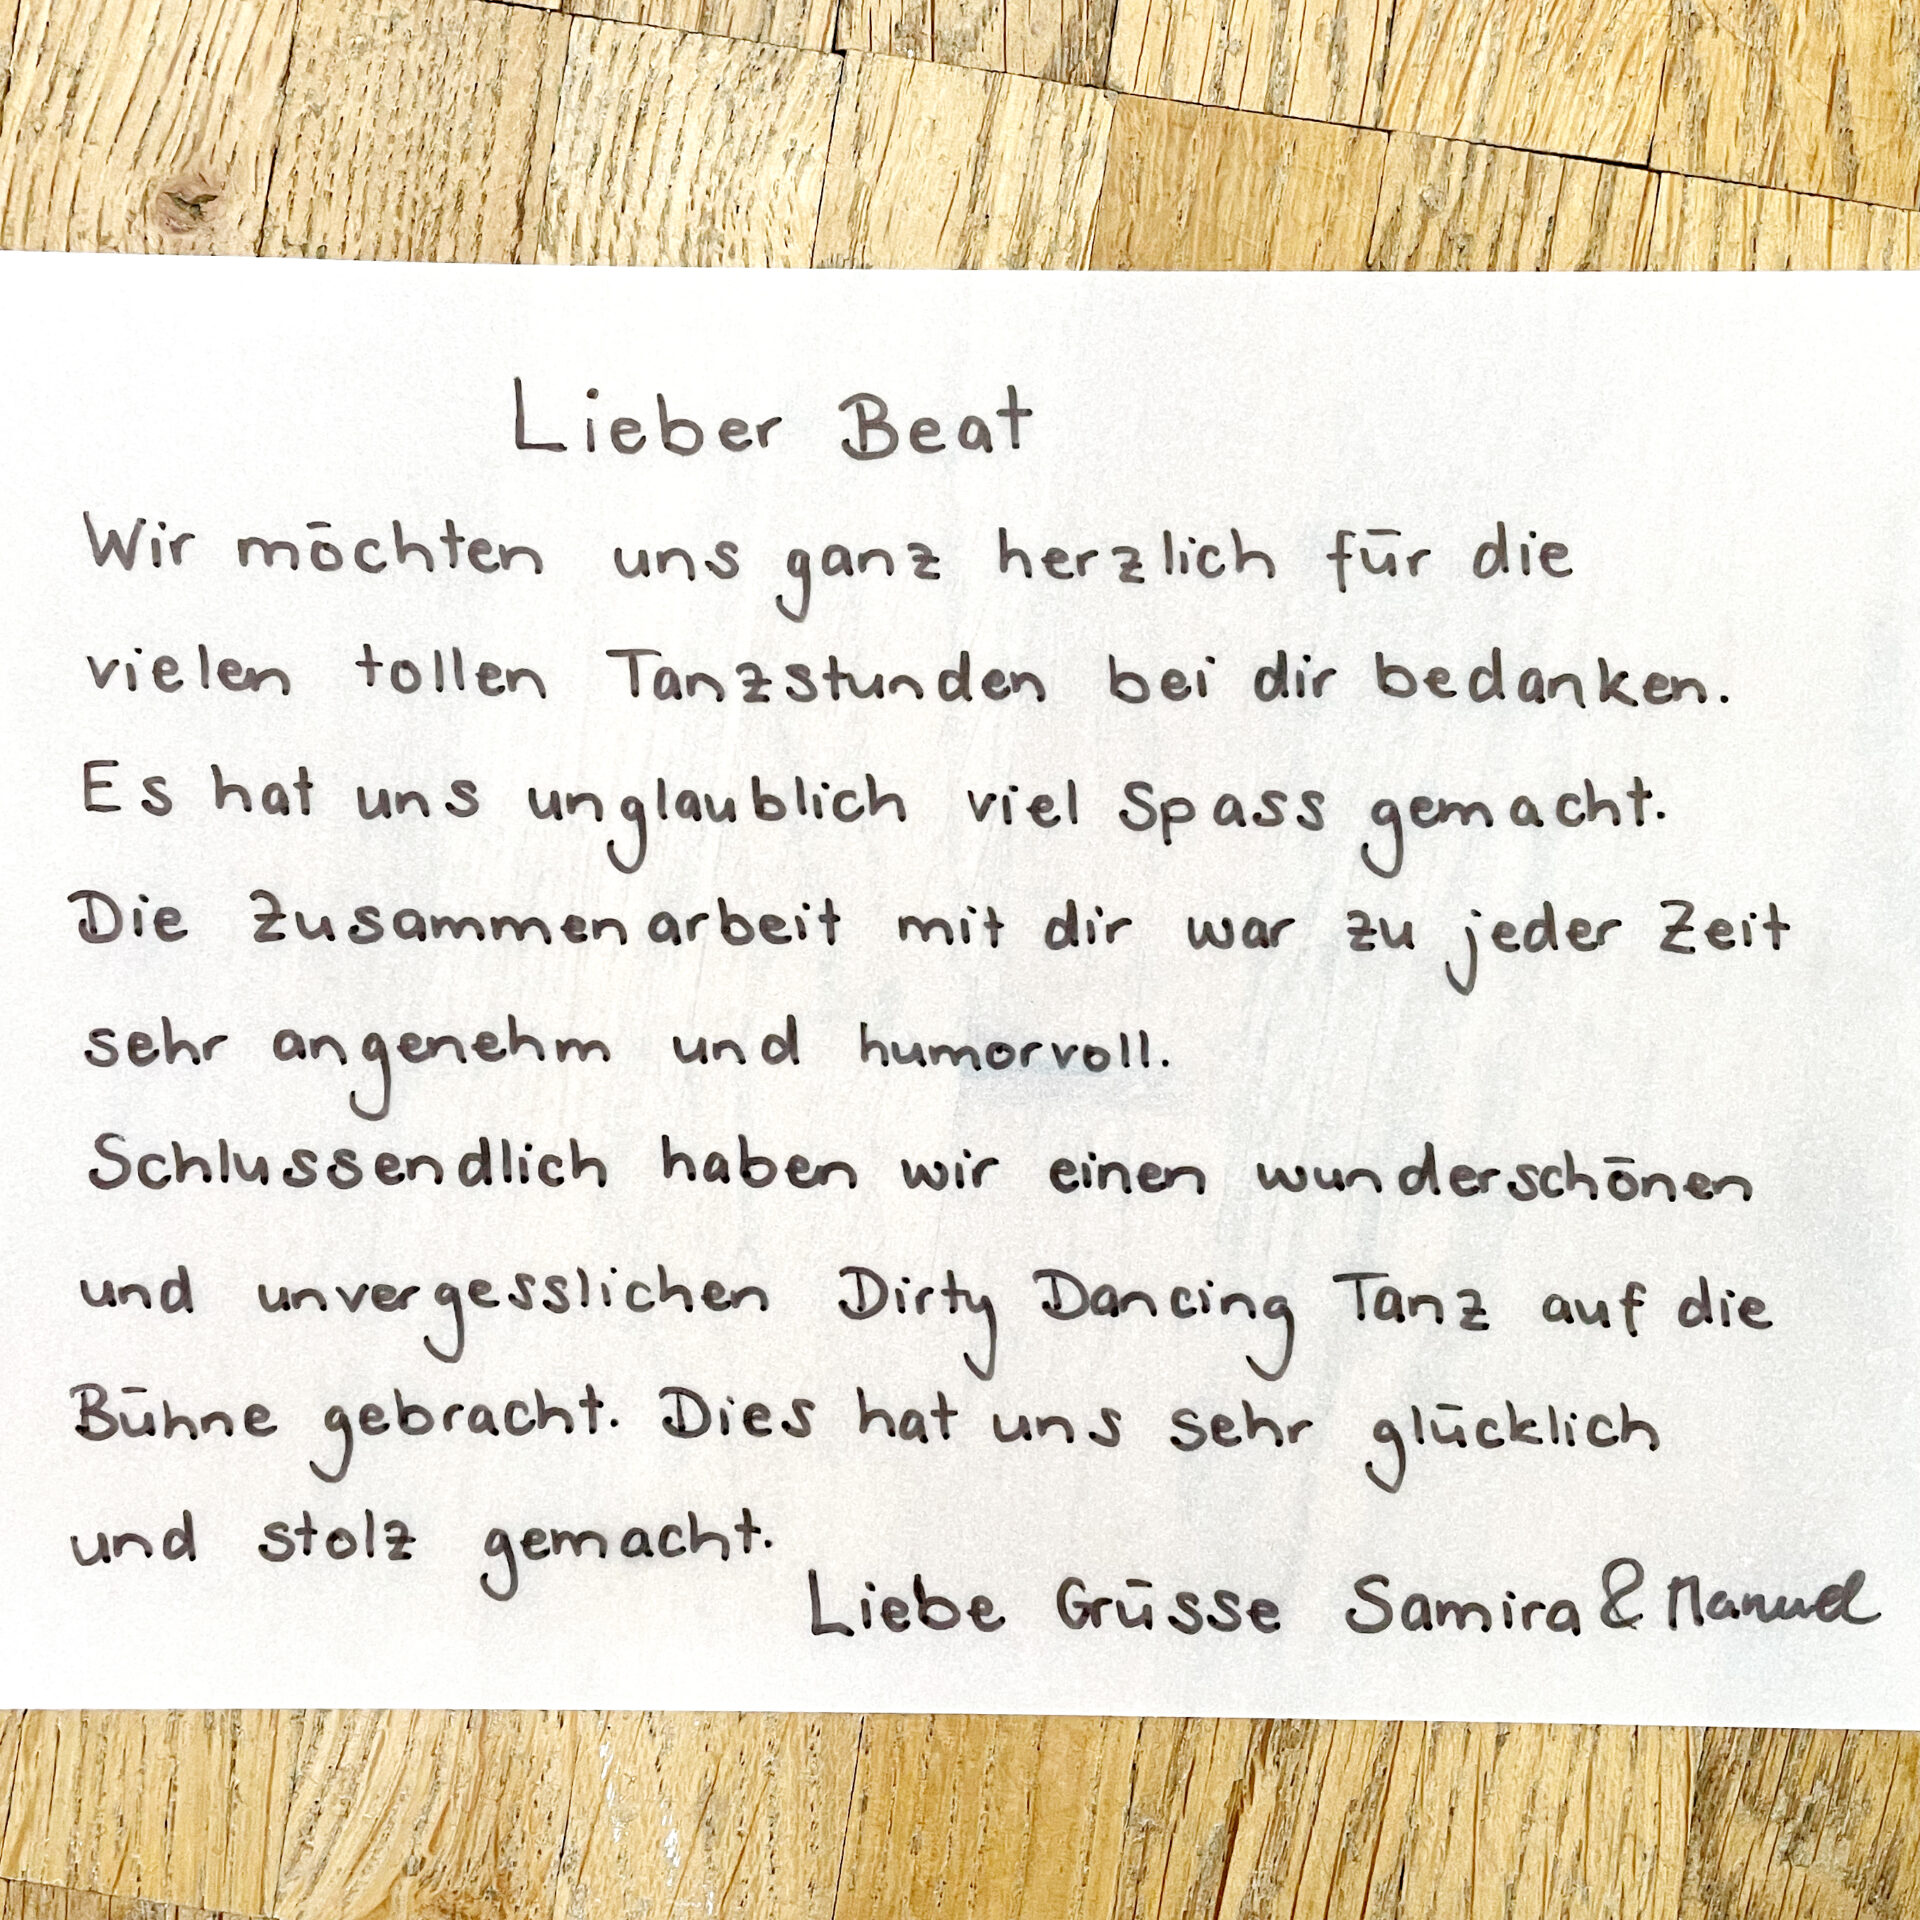 Lieber Beat
Wir möchten uns ganz herzlich für die
vielen tollen Tanzstunden bei dir bedanken.
Es hat uns unglaublich viel Spass gemacht.
Die Zusammenarbeit mit dir war zu jeder Zeit
sehr angenehm und humorvoll.
Schlussendlich haben wir einen wunderschönen
und unvergesslichen Dirty Dancing Tanz auf die
Bühne gebracht. Dies hat uns sehr glücklich
und stolz gemacht.
Liebe Grüsse Samira & Manuel